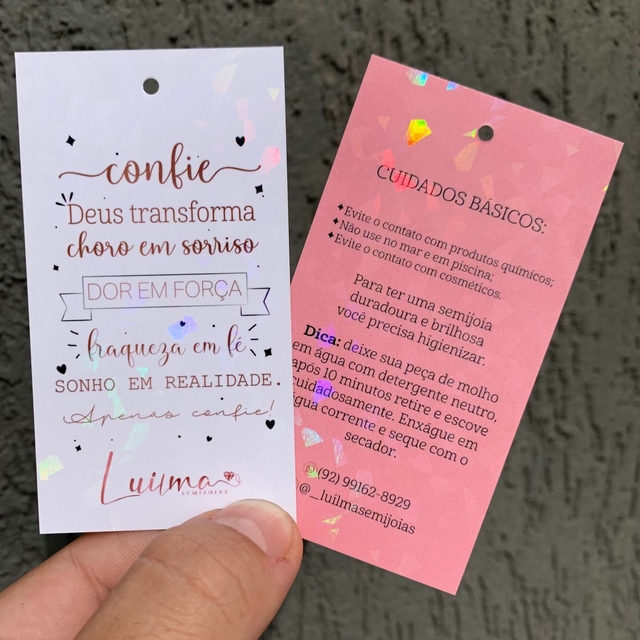 confie
Deus transforma
choro em sorriso
DOR EM FORÇA
fraqueza em fé
SONHO EM REALIDADE.
Apenas confie!
Luilma
SEMIJOIAS
CUIDADOS BÁSICOS:
Evite o contato com produtos químicos;
Não use no mar e em piscina;
Evite o contato com cosméticos.
Para ter uma semijoia
duradoura e brilhosa
você precisa higienizar.
Dica: deixe sua peça de molho
em água com detergente neutro,
após 10 minutos retire e escove
cuidadosamente. Enxágue em
água corrente e seque com o
secador.
(92) 99162-8929
@_luilmasemijoias